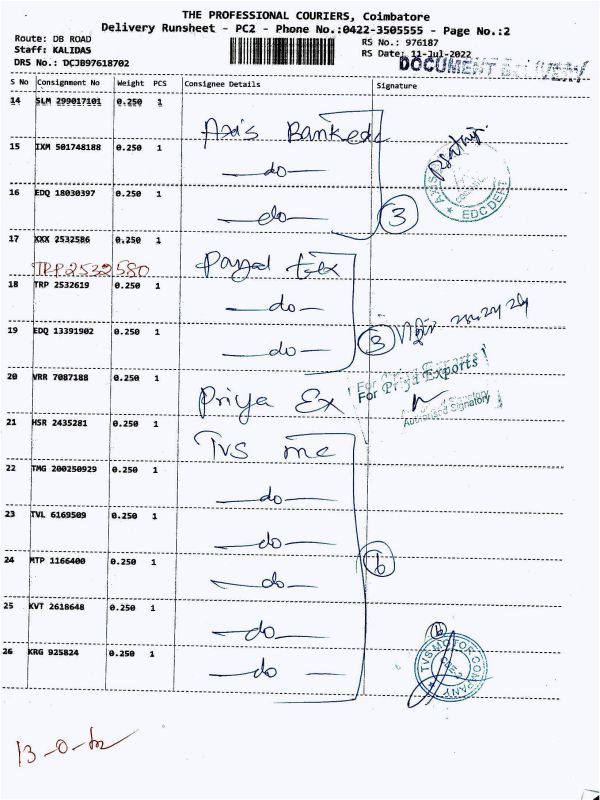 THE PROFESSIONAL COURIERS, Coimbatore
Delivery Runsheet - PC2 - Phone No.:0422-3505555 - Page No.:2
Route: DB ROAD RS No.: 976187
Staff: KALIDAS RS Date: 11-Jul-2022
DRS No.: DCJB97618702 DOCUMENT DELIVERY
S No Consignment No Weight PCS Consignee Details Signature
14 SLM 299017101 0.250 1
Axis Bank edc
15 IXM 501748188 0.250 1
do
16 EDQ 18030397 0.250 1
do 3
EDC DEPT
17 XXX 2532586 0.250 1
TRP 2532580
18 TRP 2532619 0.250 1
do
19 EDQ 13391902 0.250 1
do 3
20 VRR 7087188 0.250 1
Priya Ex
For Priya Exports
Authorised Signatory
21 HSR 2435281 0.250 1
TVS mc
22 TMG 200250929 0.250 1
do
23 TVL 6169509 0.250 1
do
24 MTP 1166400 0.250 1
do 6
25 KVT 2618648 0.250 1
do
26 KRG 925824 0.250 1
do
6
TVS MOTOR COMPANY